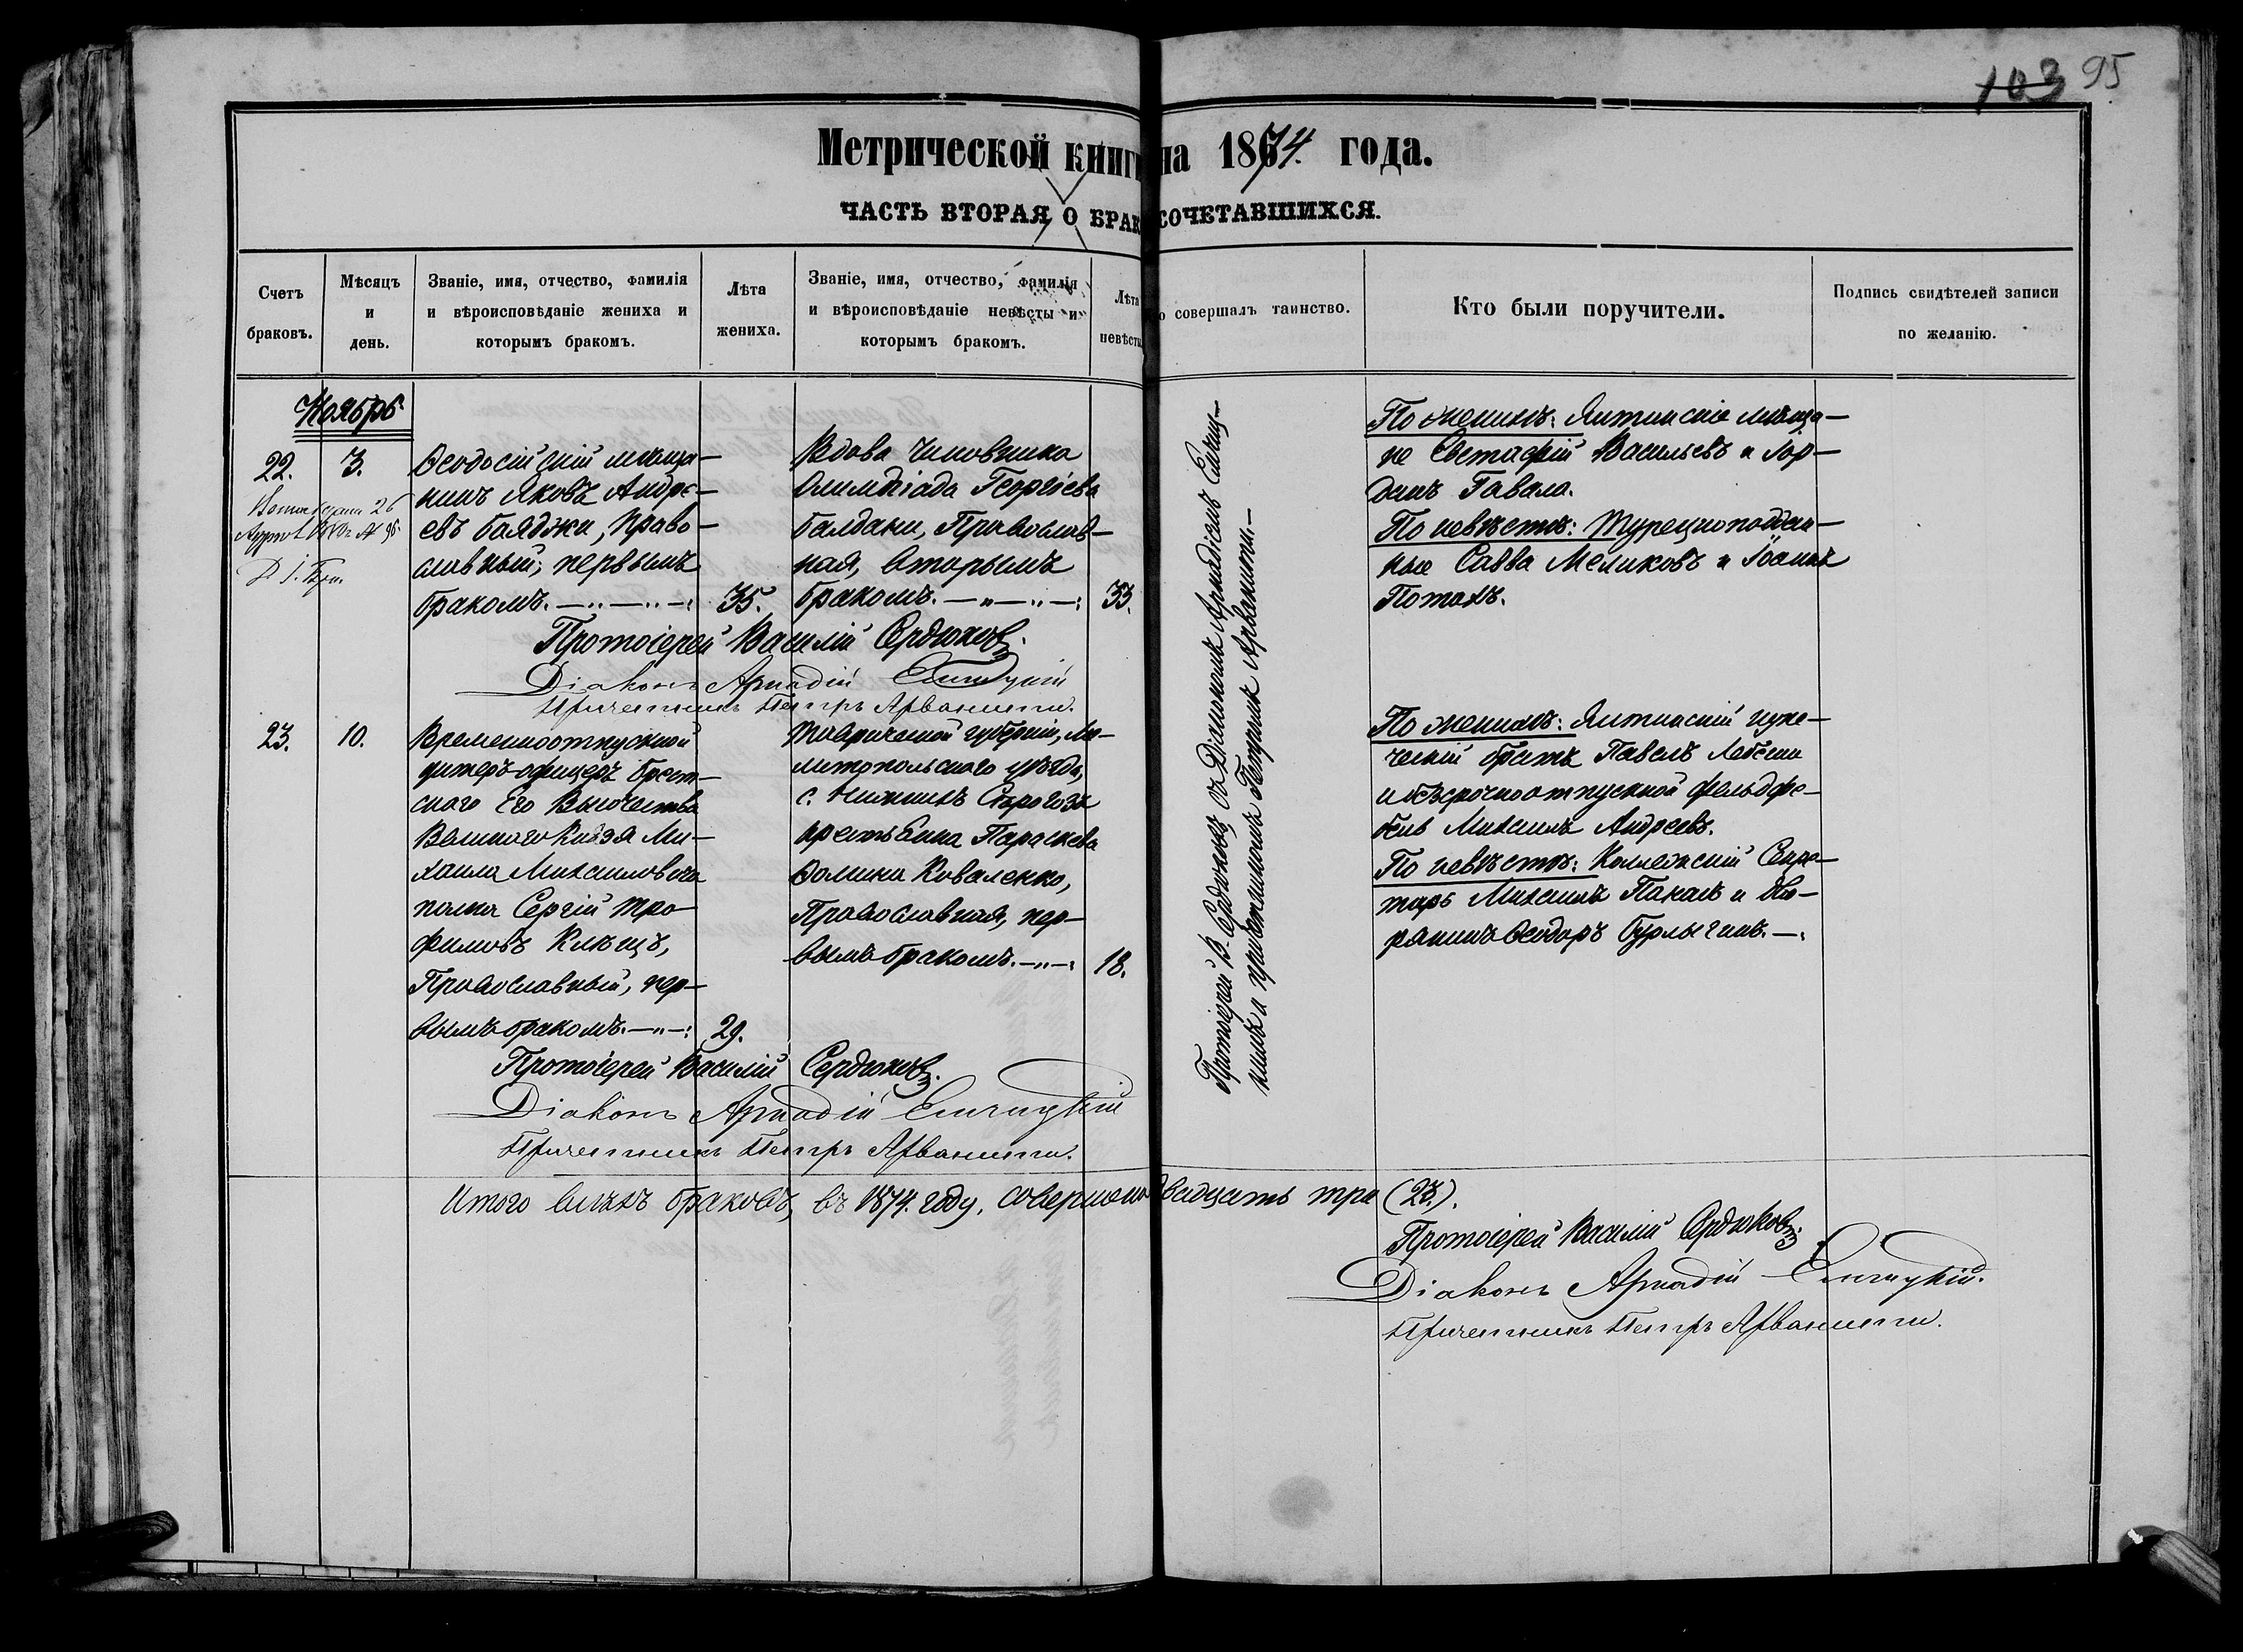 103 95
Метрической книги на 1874. года.
ЧАСТЬ ВТОРАЯ, О БРАКОСОЧЕТАВШИХСЯ.
Счетъ
браковъ.
Мѣсяцъ
и
день.
Званіе, имя, отчество, фамилія
и вѣроисповѣданіе жениха и
которымъ бракомъ.
Лѣта
жениха.
Званіе, имя, отчество, фамилія
и вѣроисповѣданіе невѣсты и
которымъ бракомъ.
Лѣта
невѣсты
о совершалъ таинство.
Кто были поручители.
Подпись свидѣтелей записи
по желанію.
Ноябрь
22.
3.
Ѳеодосійскій мѣща-
нинъ Яковъ Андре-
евъ Бояджи, Право-
славный; первымъ
бракомъ.
35.
Вдова чиновника
Олимпіада Георгіева
Балдани, Православ-
ная, вторымъ
бракомъ.
33.
По женихѣ: Ялтинскіе мѣща-
не Евстафій Васильевъ и Іор-
данъ Гавала.
По невѣстѣ: Турецкоподдан-
ные Савва Меликовъ и Іоаннъ
Потахъ.
Протоіерей Василій Сердюковъ.
Діаконъ Аркадій
Причетникъ Петръ Арванити.
23.
10.
Временноотпускной
унтеръ-офицеръ Брест-
скаго Его Высочества
Великаго Князя Ми-
хаила Михаиловича
полка Сергій Тро-
фимовъ Клѣщъ,
Православный, пер-
вымъ бракомъ.
29.
Таврической губерніи, Ме-
литопольскаго уѣзда,
с. Нижнихъ Сѣрогозъ
крестьянка Параскева
Ѳомина Коваленко,
Православная, пер-
вымъ бракомъ.
18.
Протоіерей В. Сердюковъ съ Діакономъ Аркадіемъ
кимъ и причетникомъ Петромъ Арванити.
По женихѣ: Ялтинскій купе-
ческій братъ Павелъ Лебеш
и безсрочноотпускной фельдфе-
бель Михаилъ Андреевъ.
По невѣстѣ: Коллежскій Секре-
тарь Михаилъ Пакаль и Дво-
рянинъ Ѳеодоръ
Протоіерей Василій Сердюковъ.
Діаконъ Аркадій
Причетникъ Петръ Арванити.
Итого всѣхъ браковъ, въ 1874. году, совершено двадцать три (23.).
Протоіерей Василій Сердюковъ.
Діаконъ Аркадій
Причетникъ Петръ Арванити.